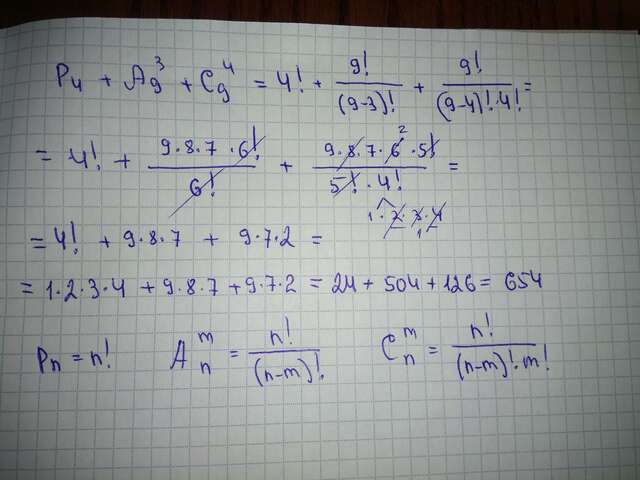 P₄ + A₉³ + C₉⁴ = 4! + 9!/(9-3)! + 9!/((9-4)!·4!) =
= 4! + 9·8·7·6!/6! + 9·8·7·6²·5!/(5!·4!) =
1·2·3·4
= 4! + 9·8·7 + 9·7·2 =
= 1·2·3·4 + 9·8·7 + 9·7·2 = 24 + 504 + 126 = 654
Pn = n! Aₙᵐ = n!/(n-m)! Cₙᵐ = n!/((n-m)!·m!)